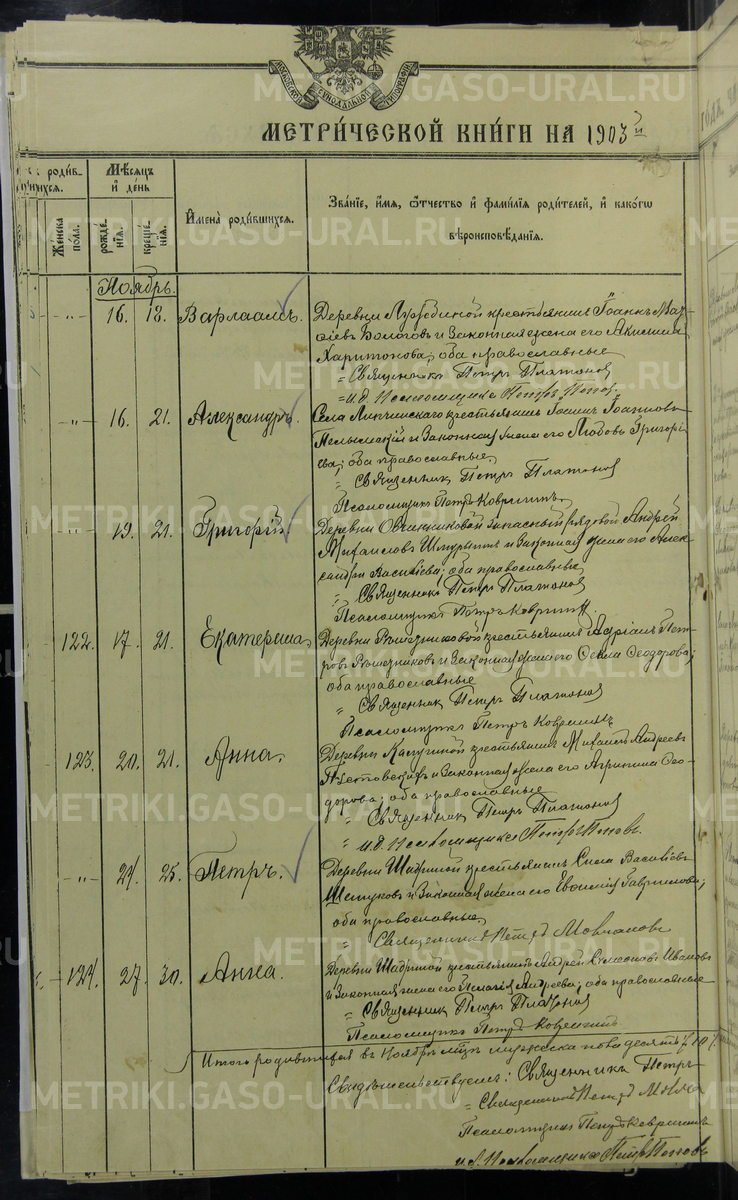 МЕТРИ́ЧЕСКОЙ КНИ́ГИ НА 1903й
МОСКОВСКОЙ СУНОДАЛЬНОЙ ТИПОГРАФІИ
родив-
шихся.
Же́нска по́ла.
Мѣ́сяцъ и́ день
рожде́нїѧ.
креще́нїѧ.
И҆мена̀ роди́вшихсѧ.
Зва́нїе, и҆́мѧ, ѻ҆́тчество и҆ фами́лїѧ роди́телей, и҆ како́гѡ
вѣроисповѣ́данїѧ.
Ноябрь.
-„- 16. 18. Варлаамъ.
Деревни крестьянинъ Іоаннъ
Бологовъ и законная жена его Акилина
Харитонова; оба православные
= Священникъ Петръ Платоновъ
= И.д. Псаломщика Петръ Поповъ.
-„- 16. 21. Александръ.
Села Липчинскаго крестьянинъ Іоанновъ
и законная жена его Любовь Григорі-
ева; оба православные.
= Священникъ Петръ Платоновъ
Псаломщикъ Петръ Ковригинъ.
-„- 19. 21. Григорій
Деревни Овчинниковой запасный рядовой Андрей
Михаиловъ и законная жена его Алек-
сандра Васильева; оба православные
= Священникъ Петръ Платоновъ
Псаломщикъ Петръ Ковригинъ.
122. 17. 21. Екатерина.
Деревни Рѣшетниковой крестьянинъ Адріанъ Пет-
ровъ Рѣшетниковъ и законная жена его Ѳекла Ѳеодорова;
оба православные
= Священникъ Петръ Платоновъ
Псаломщикъ Петръ Ковригинъ
123. 20. 21. Анна.
Деревни крестьянинъ Михаилъ Андреевъ
и законная жена его Агрипина Ѳео-
дорова; оба православные
= Священникъ Петръ Платоновъ
= И.д. Псаломщика Петръ Поповъ.
-„- 24. 25. Петръ.
Деревни Шадриной крестьянинъ Сила Васильевъ
и законная жена его Евфимія Гаврилова;
оба православные.
= Священникъ Петръ
124. 27. 30. Анна.
Деревни Шадриной крестьянинъ Андрей Симеоновъ Ивановъ
и законная жена его Пелагія Андреева; оба православные
= Священникъ Петръ Платоновъ
Псаломщикъ Петръ Ковригинъ
Итого родившихся въ Ноябрѣ м-цѣ мужеска пола десять /10/.
Свидѣтельствуемъ: Священникъ Петръ
= Священникъ Петръ
Псаломщикъ Петръ Ковригинъ
И.д. Псаломщика Петръ Поповъ
METRIKI.GASO-URAL.RU